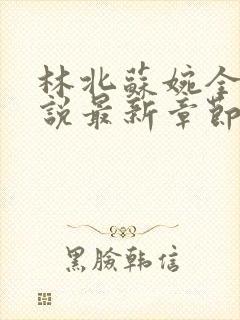 林北蘇婉全
說最新章節
黑臉韩信